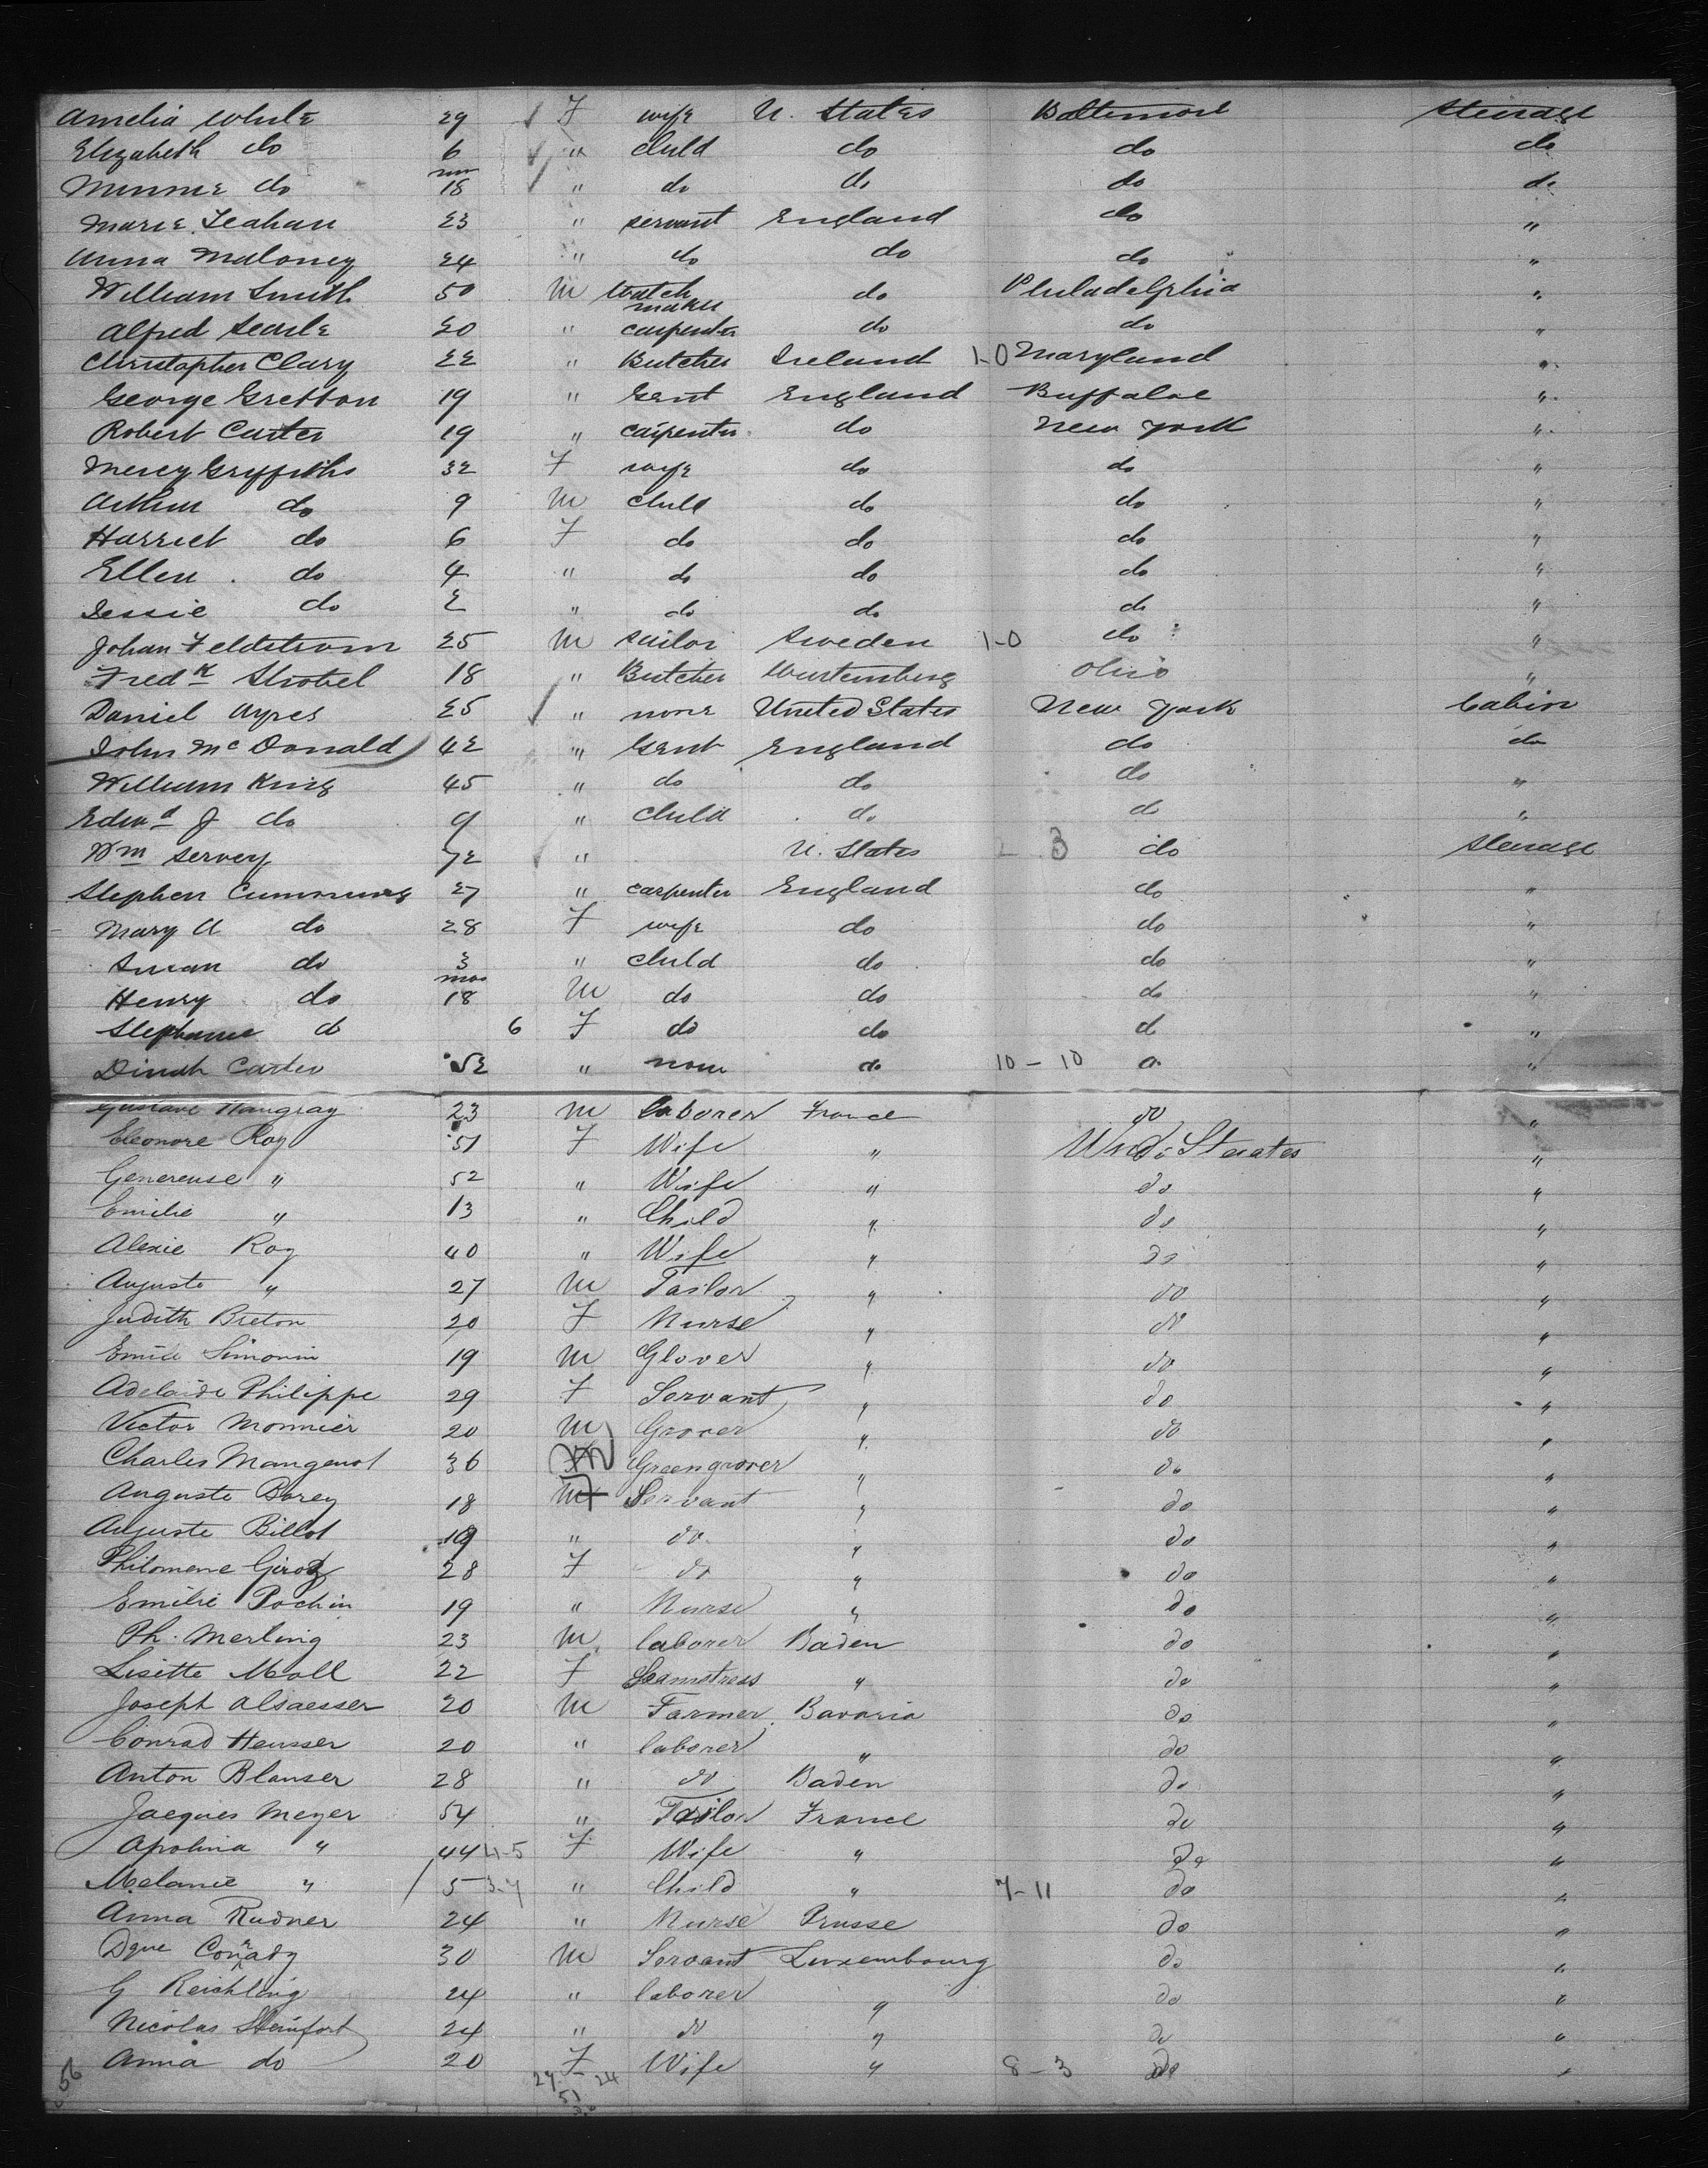 Amelia White 29 F wife U. States Baltimore Steerage
Elizabeth do 6 " child do do do
Minnie do 18 mos " do do do do
Marie Leahan 23 " servant England do "
Anna Maloney 24 " do do do "
William Smith 50 M Watch maker do Philadelphia "
Alfred Searle 20 " carpenter do do "
Christopher Clary 22 " Butcher Ireland 1-0 Maryland "
George Gretton 19 " Gent England Buffaloe "
Robert Carter 19 " carpenter do New York "
Mercy Gryffiths 32 F wife do do "
Arthur do 9 M child do do "
Harriet do 6 F do do do "
Ellen do 4 " do do do "
Jessie do 2 " do do do "
Johan Feldstrom 25 M sailor Sweden 1-0 do "
Fredk Strobel 18 " Butcher Wurtemberg Ohio "
Daniel Ayres 25 " none United States New York Cabin
John McDonald 42 " Gent England do do
William King 45 " do do do "
Edwd J do 9 " child do do "
Wm Servey 72 " U. States 3 do Steerage
Stephen Cummings 27 " carpenter England do "
Mary A do 28 F wife do do "
Susan do 3 " child do do "
Henry do 18 mos M do do do "
Stephanie do 6 F do do d "
Dinah Carter 52 " none do 10-10 "
Gustave Haugray 23 M laborer France do "
Eleonore Roy 51 F Wife " Und. Steates "
Genereuse " 52 " Wife " do "
Emilie " 13 " Child " do "
Alexie Roy 40 " Wife " do "
Auguste " 27 M Tailor " do "
Judith Breton 20 F Nurse " do "
Emile Simonin 19 M Glover " do "
Adelaide Philippe 29 F Servant " do "
Victor Monnier 20 M Grocer " do "
Charles Mangenot 36 M Greengrocer " do "
Auguste Borey 18 M Servant " do "
Auguste Billot 19 " do " do "
Philomene Girod 28 F do " do "
Emilie Pochin 19 " Nurse " do "
Ph. Merling 23 M laborer Baden do "
Lisette Moll 22 F Seamstress " do "
Joseph Alsaesser 20 M Farmer Bavaria do "
Conrad Heusser 20 " laborer " do "
Anton Blanser 28 " do Baden do "
Jacques Meyer 54 " Tailor France do "
Apolina " 44 4-5 F Wife " do "
Melanie " 5 3-4 " Child " 7-11 do "
Anna Rudner 24 " Nurse Prusse do "
Dque Conrady 30 M Servant Luxembourg do "
G Reichling 24 " laborer " do "
Nicolas Steinfort 24 " do " do "
Anna do 20 F Wife " 8-3 do "
56 27-24
51